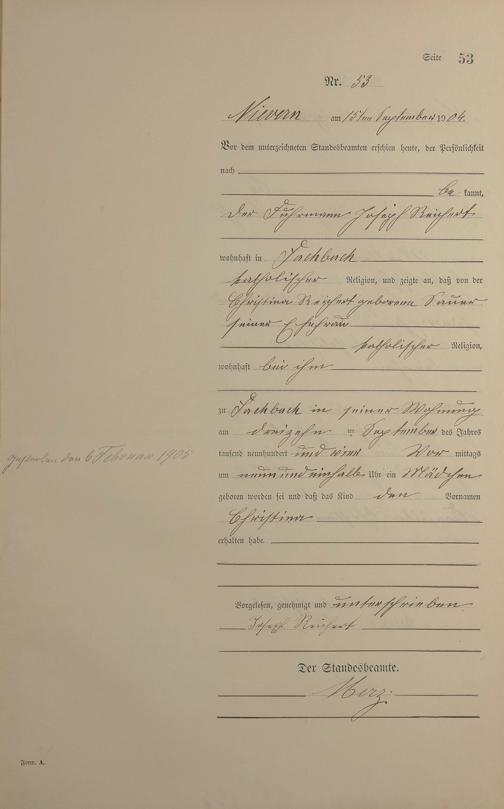 Seite 53
Nr. 53
Nievern am 15ten September 1904.
Vor dem unterzeichneten Standesbeamten erschien heute, der Persönlichkeit
nach
be kannt,
der Fuhrmann Joseph Reichert
wohnhaft in Fachbach
katholischer Religion, und zeigte an, daß von der
Christina Reichert geborenen Sauer
seiner Ehefrau
katholischer Religion,
wohnhaft bei ihm
zu Fachbach in seiner Wohnung
am dreizehn ten September des Jahres
tausend neunhundert und vier Vor mittags
um neun und einhalb Uhr ein Mädchen
geboren worden sei und daß das Kind den Vornamen
Christina
erhalten habe.
gestorben den 6 Februar 1905
Vorgelesen, genehmigt und unterschrieben
Joseph Reichert
Der Standesbeamte.
Merz
Form. A.